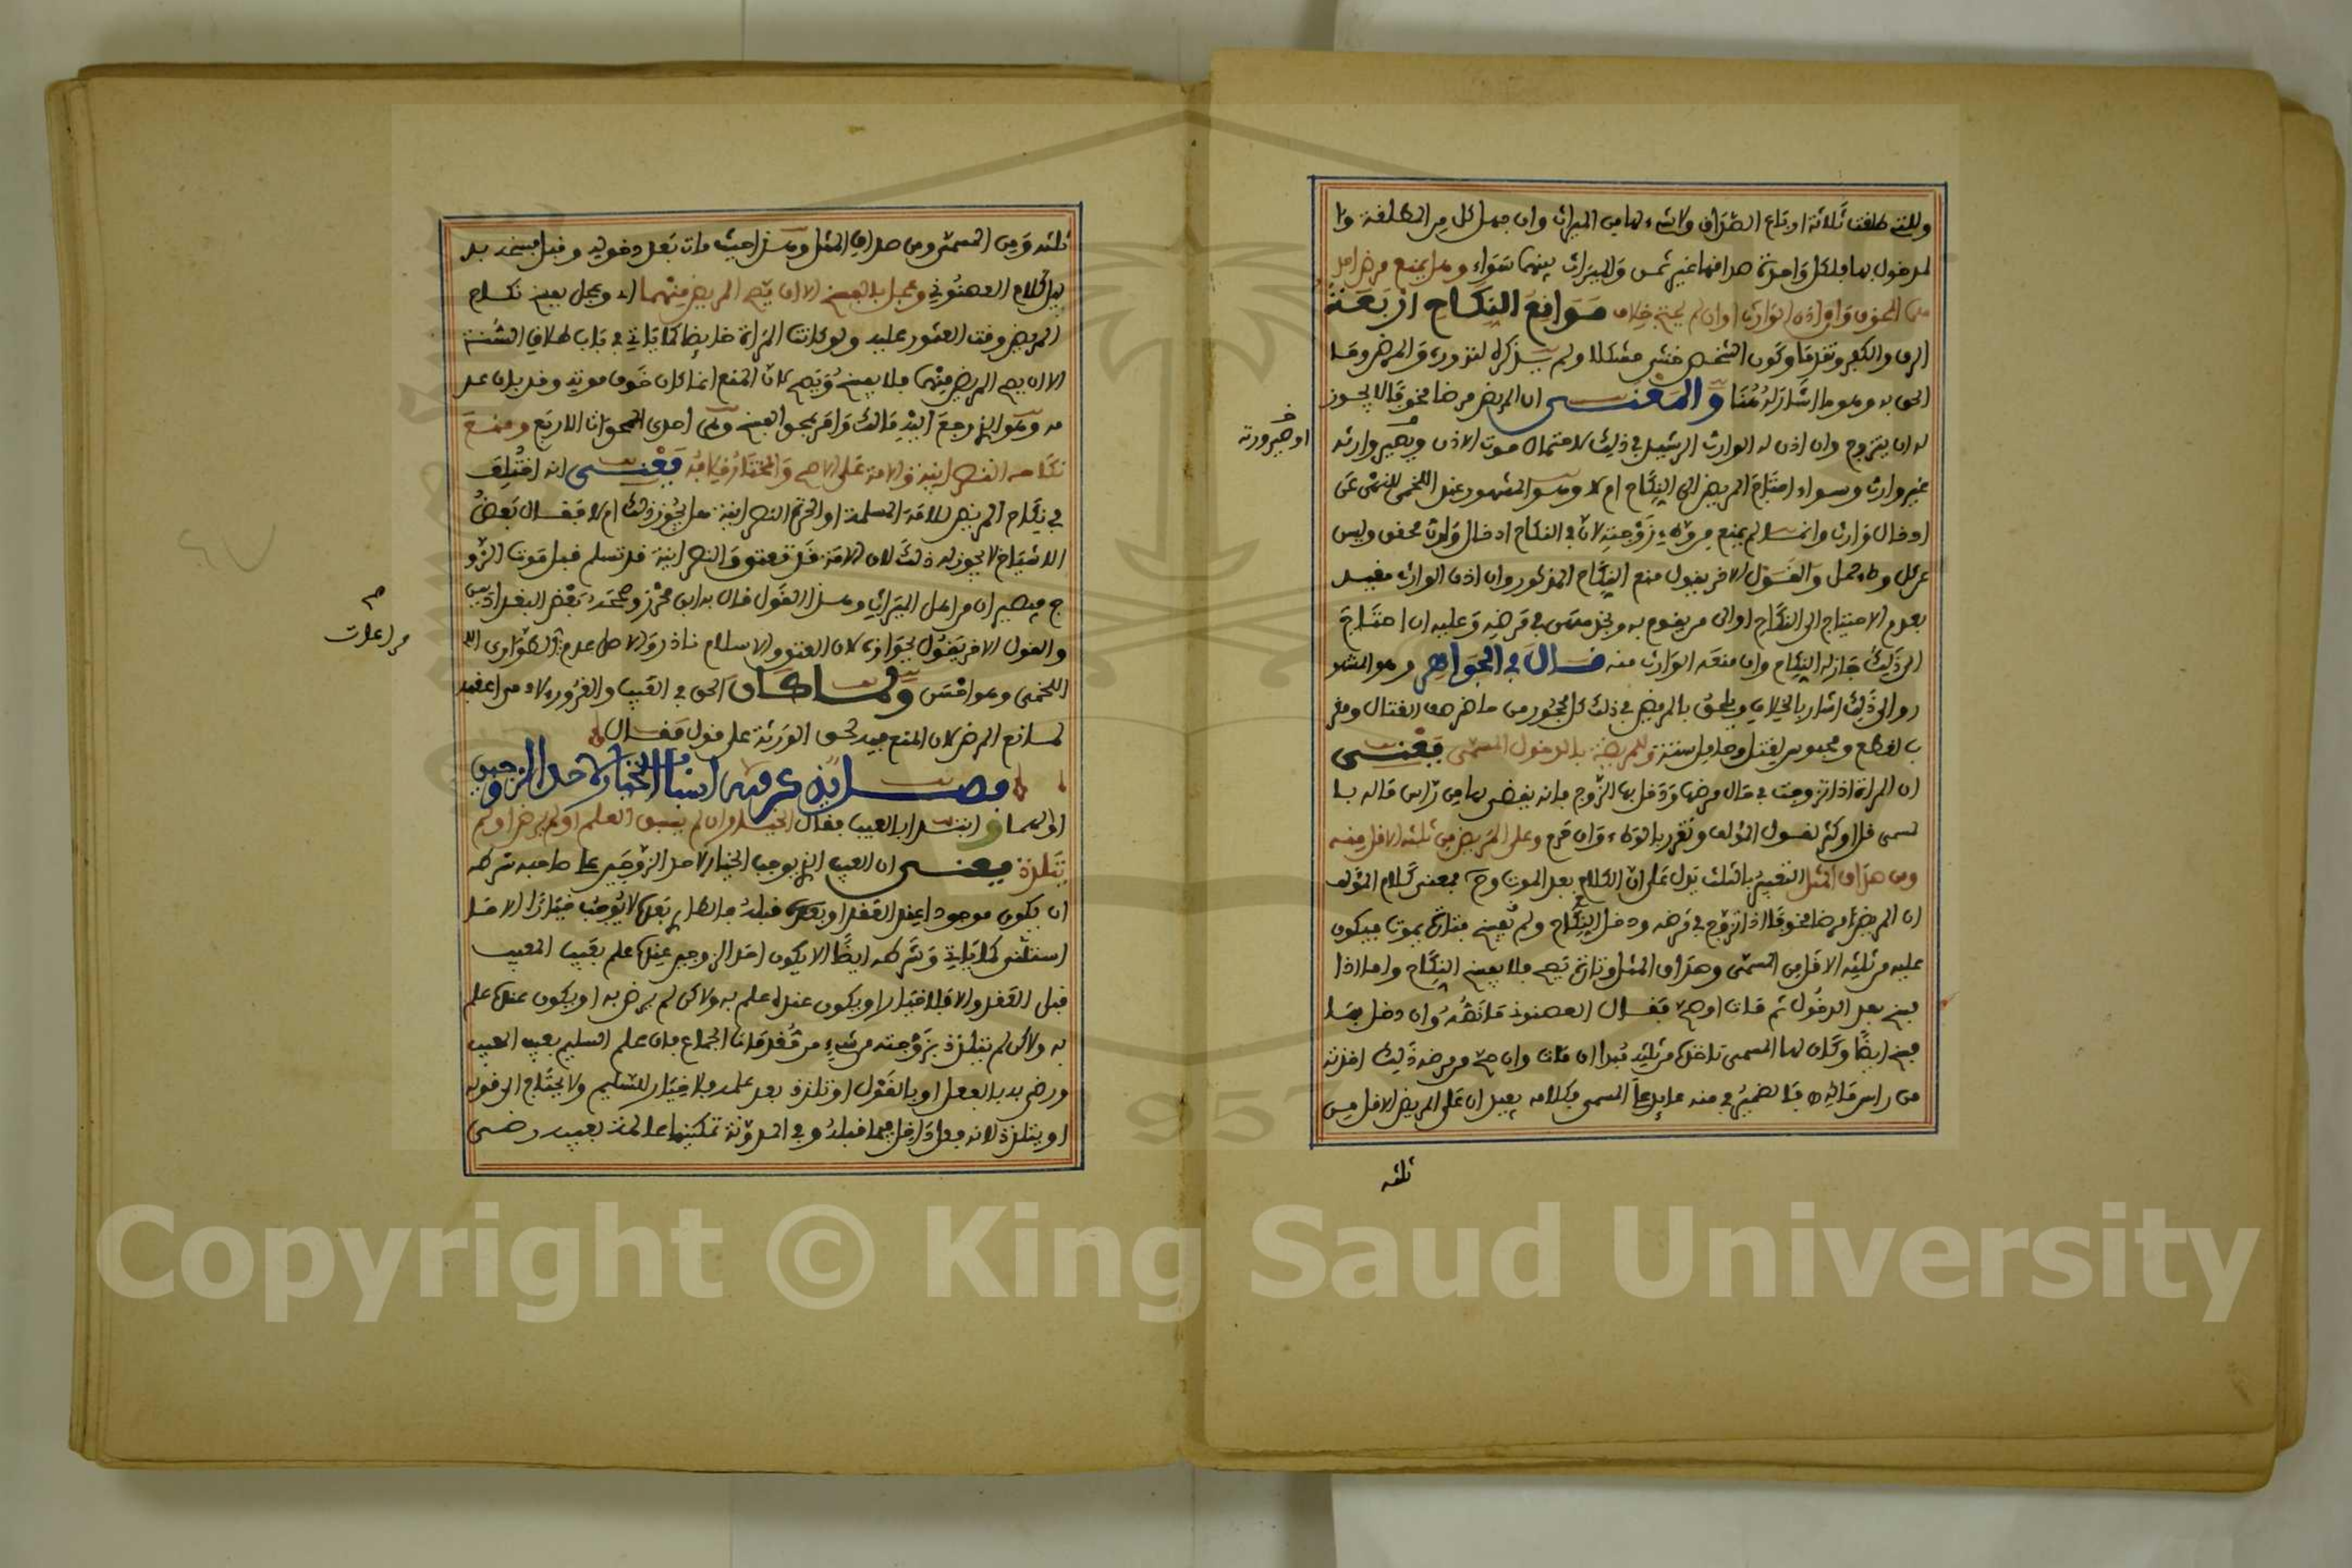 وللتي طلقت ثلاثة ارباع الصداق ولا شيء لها من الميراث وان جهل كل من المطلقة وا
لمدخول بها فلكل واحدة صداقها غير ثمن والميراث بينهما سواء وهل يمنع مرض احد
هما المخوف وان اذن الوارث او ان لم يحتج خلاف موانع النكاح اربعة
الرق والكفر وتقدما وكون الشخص خنثى مشكلا ولم يذكره لندوره والمرض وما
الحق به وهو ما اشار له هنا والمعنى ان المريض مرضا مخوفا لا يجوز
له ان يتزوج وان اذن له الوارث الرشيد في ذلك لاحتمال موت الاذن ويصير وارثه
او صيرورته
غير وارث وسواء احتاج المريض الى النكاح ام لا وهو المشهور عند اللخمي للنهي عن
ادخال وارث وانما لم يمنع من وطء زوجته لان في النكاح ادخال وارث محقق وليس
عن كل وطء حمل والقول الاخر يقول منع النكاح المذكور وان اذن الوارث مقيد
بعدم الاحتياج الى النكاح او الى من يقوم به ويخدمه في مرضه وعليه ان احتاج
الى ذلك جاز له النكاح وان منعه الوارث منه قال في الجواهر وهو المشهو
ر والى ذلك اشار بالخلاف ويلحق بالمريض في ذلك كل محجور من حاضر صف القتال ومقر
ب لقطع ومحبوس لقتل وحامل ستة وللمريضة بالدخول المسمى يعني
ان المراة اذا تزوجت في حال مرضها ودخل بها الزوج فانه يقضى لها من راس ماله با
لمسمى قل او كثر لقول المؤلف وتقرر بالوطء وان حرم وعلى المريض من ثلثه الاقل منه
ومن صداق المثل التقييد بالثلث يدل على ان الكلام بعد الموت وح فمعنى كلام المؤلف
ان المريض مرضا مخوفا اذا تزوج في مرضه ودخل النكاح ولم يفسخ حتى مات يموت فيكون
عليه من ثلثه الاقل من المسمى وصداق المثل وتارة يصح فلا يفسخ النكاح واما اذا
فسخ بعد الدخول ثم مات او صح فقال العصنوني ما نصه وان دخل بها
فسخ ايضا وكان لها المسمى تاخذه من ثلثه مبدا ان مات وان صح من مرضه ذلك اخذته
من راس ماله فالضمير في منه عايد على المسمى فكلامه يفيد ان على المريض الاقل من
ثلثه
ثلثه ومن المسمى ومن صداق المثل وهذا حيث مات بعد دخوله وقبل فسخه بد
ليل كلام العصنوني وعجل بالفسخ الا ان يصح المريض منهما اي ويعجل بفسخ نكاح
المريض وقت العثور عليه ولو كانت المراة حايضا كما ياتي في باب طلاق السنة
الا ان يصح المريض منهما فلا يفسخ ويصح لان المنع انما كان خوف موته وقد بان عد
مه وهو الذي رجع اليه مالك وامر بمحو الفسخ وهي احدى الممحوات الاربع ومنع
نكاحه النصرانية والامة على الاصح والمختار خلافه يعني انه اختلف
في نكاح المريض للامة المسلمة او الحرة النصرانية هل يجوز ذلك ام لا فقال بعض
الاشياخ لا يجوز له ذلك لان الامة قد تعتق والنصرانية قد تسلم قبل موت الزو
ج فيصيران من اهل الميراث وهذا القول قال به ابن محرز وصححه بعض البغداديين
والقول الاخر يقول بجوازه لان العتق والاسلام نادر والاصل عدم الطوارى
صح مراعات
اللخمي وهو احسن ولما كان الحق في العيب والغرور لاحد مراعيه
لمانع المرض لان المنع فيه لحق الورثة على قول فقال
فصل انه عرفه اسباب الخيار لاحد الزوجين
اولهما وابتدا بالعيب فقال الخيار ان لم يسبق العلم او لم يرض او لم
يتلذذ يعني ان العيب الذي يوجب الخيار لاحد الزوجين على صاحبه شرطه
ان يكون موجودا عند العقد او قبله فالطارئ بعده لا يوجب خيارا الا ما
استثنى كما ياتي وشرطه ايضا الا يكون احد الزوجين عنده علم بعيب المعيب
قبل العقد والا فلا خيار او يكون عنده علم به ولاكن لم يرض به او يكون عنده علم
به ولاكن لم يتلذذ بزوجته من شيء من مقدمات الجماع فان علم السليم بعيب المعيب
ورضي به بالفعل او بالقول او تلذذ بعد علمه فلا خيار للسليم ولا يحتاج الى قوله
او يتلذذ لانه داخل فيما قبله وفي المدونة تمكينها عالمة بعيبه رضى